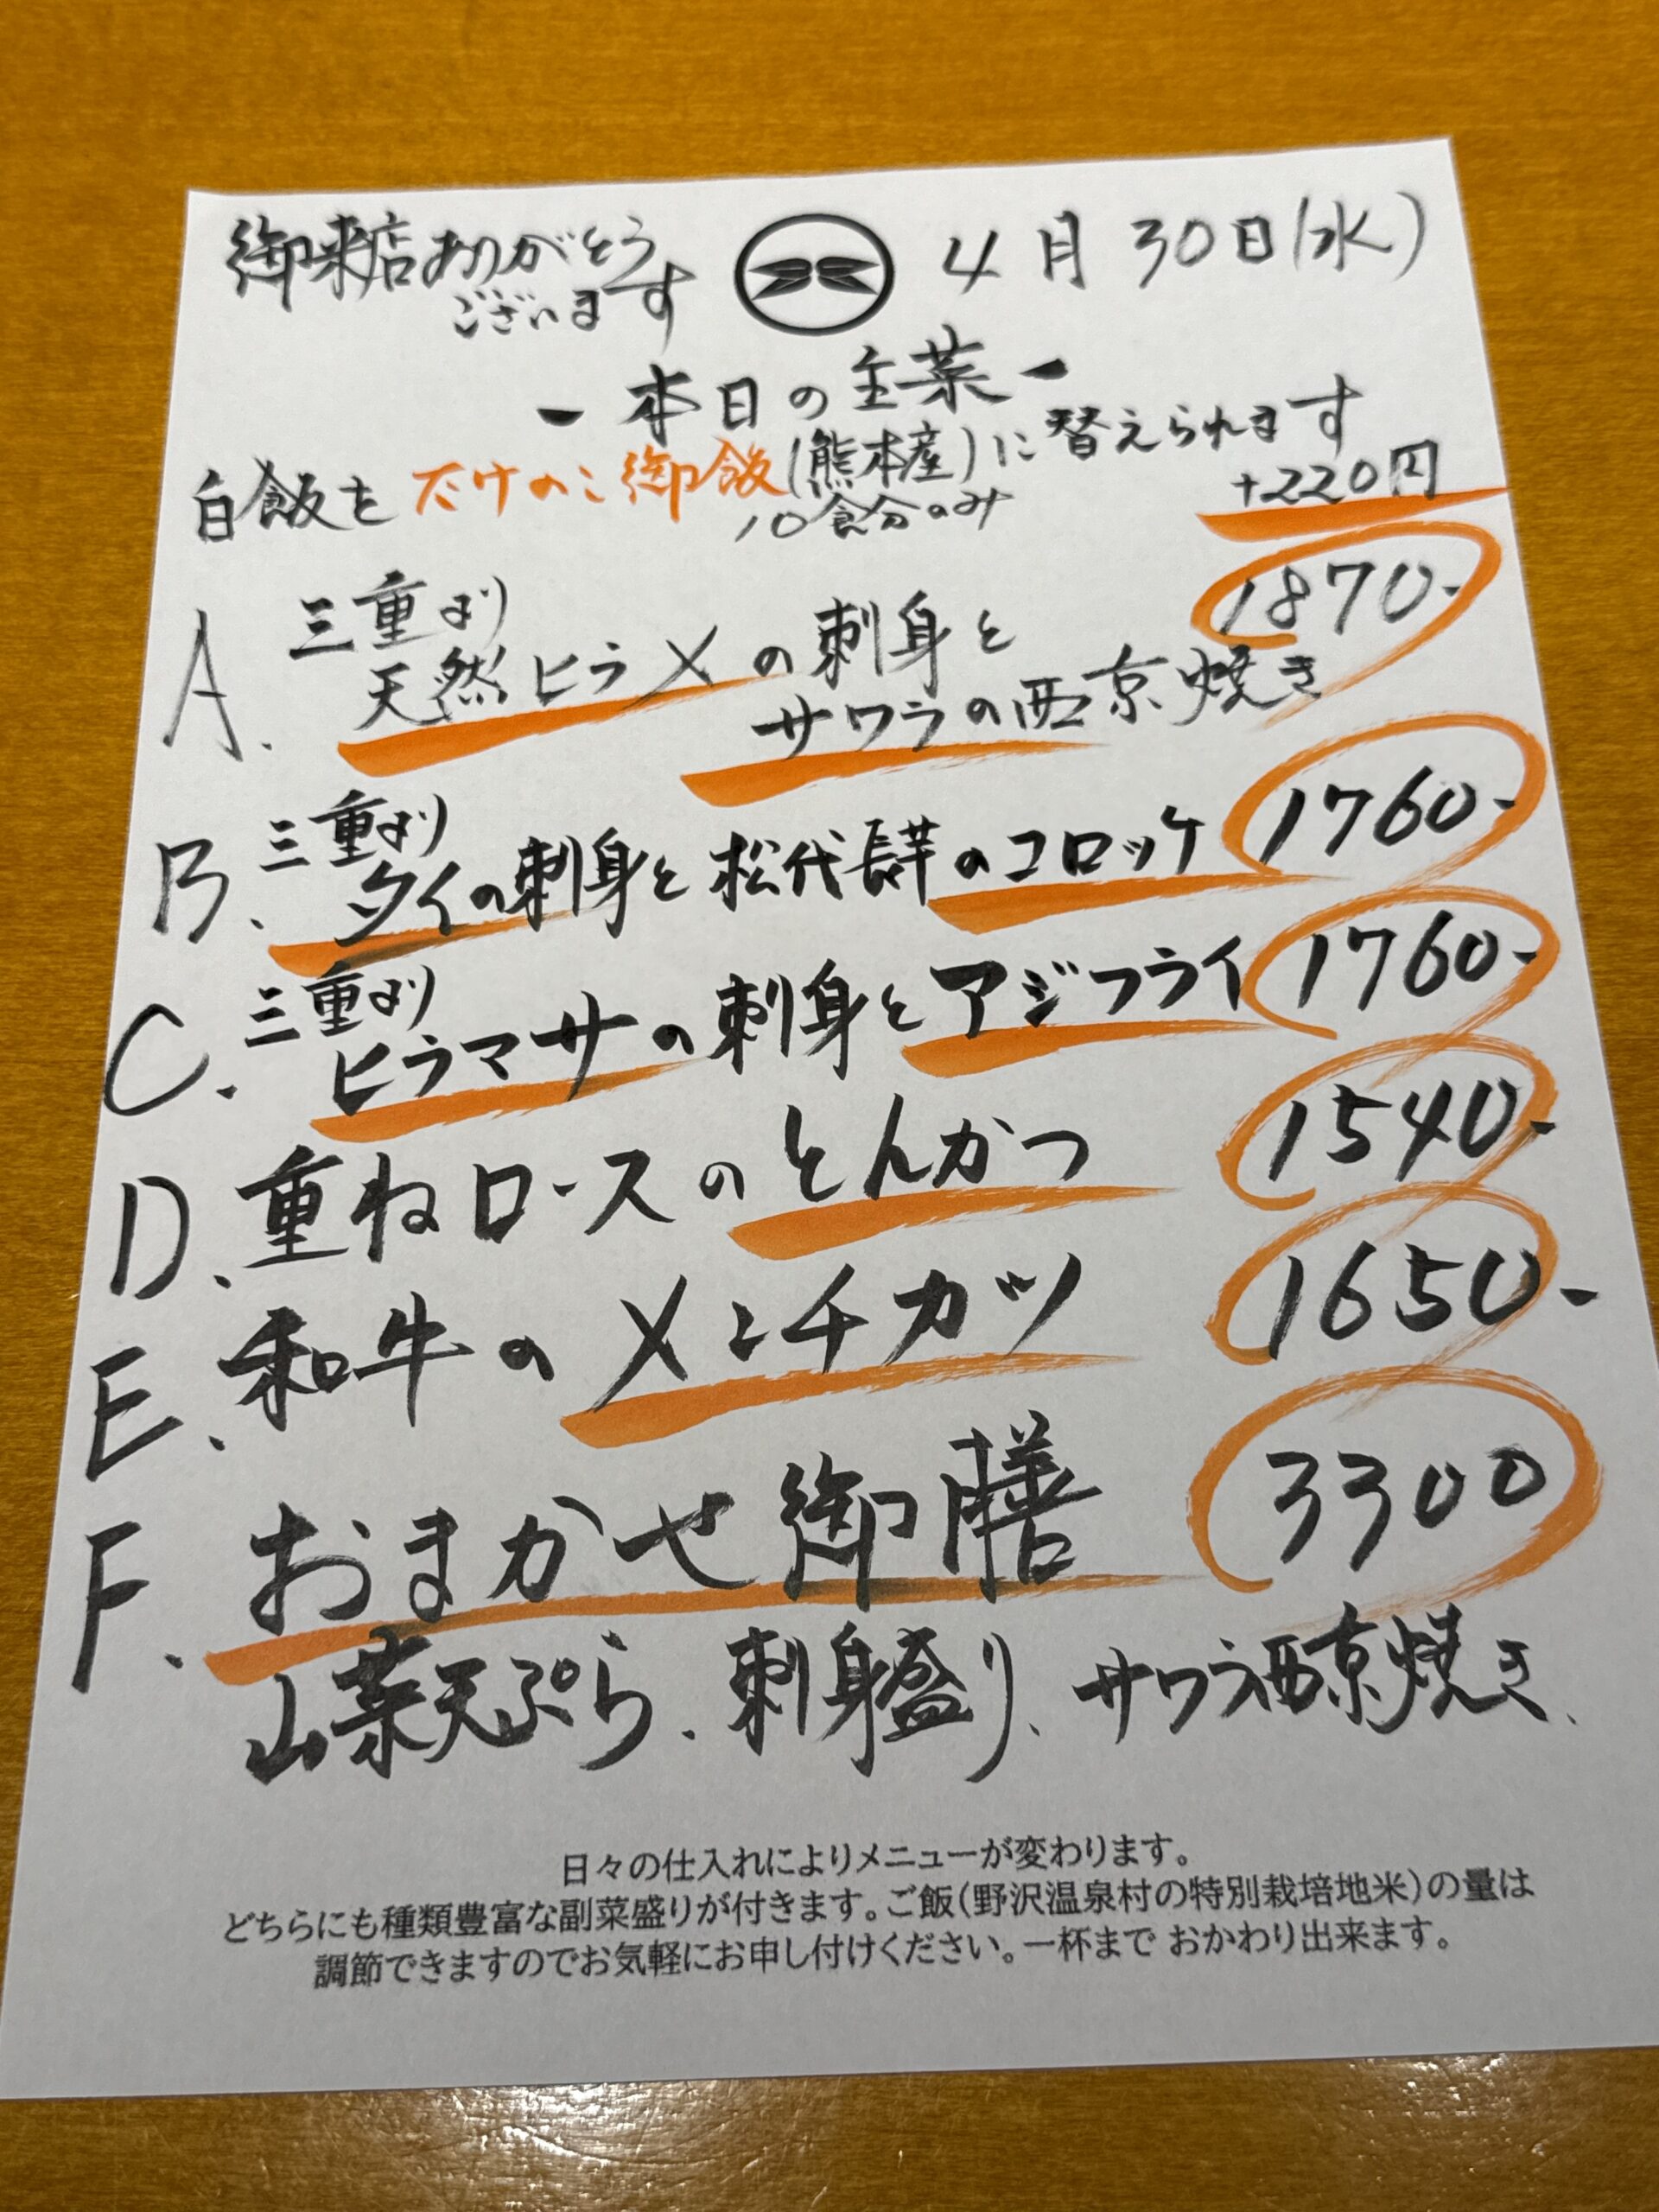 御来店ありがとう
ございます
4月30日(水)
ー本日の主菜ー
白飯をたけのこ御飯(熊本産)に替えられます
10食分のみ
+220円
A. 三重より
天然ヒラメの刺身と
サワラの西京焼き
1870-
B. 三重より
タイの刺身と松代長芋のコロッケ 1760-
C. 三重より
ヒラマサの刺身とアジフライ 1760-
D. 重ねロースのとんかつ 1540-
E. 和牛のメンチカツ 1650-
F. おまかせ御膳 3300
山菜天ぷら、刺身盛り、サワラ西京焼き、
日々の仕入れによりメニューが変わります。
どちらにも種類豊富な副菜盛りが付きます。ご飯(野沢温泉村の特別栽培地米)の量は
調節できますのでお気軽にお申し付けください。一杯まで おかわり出来ます。